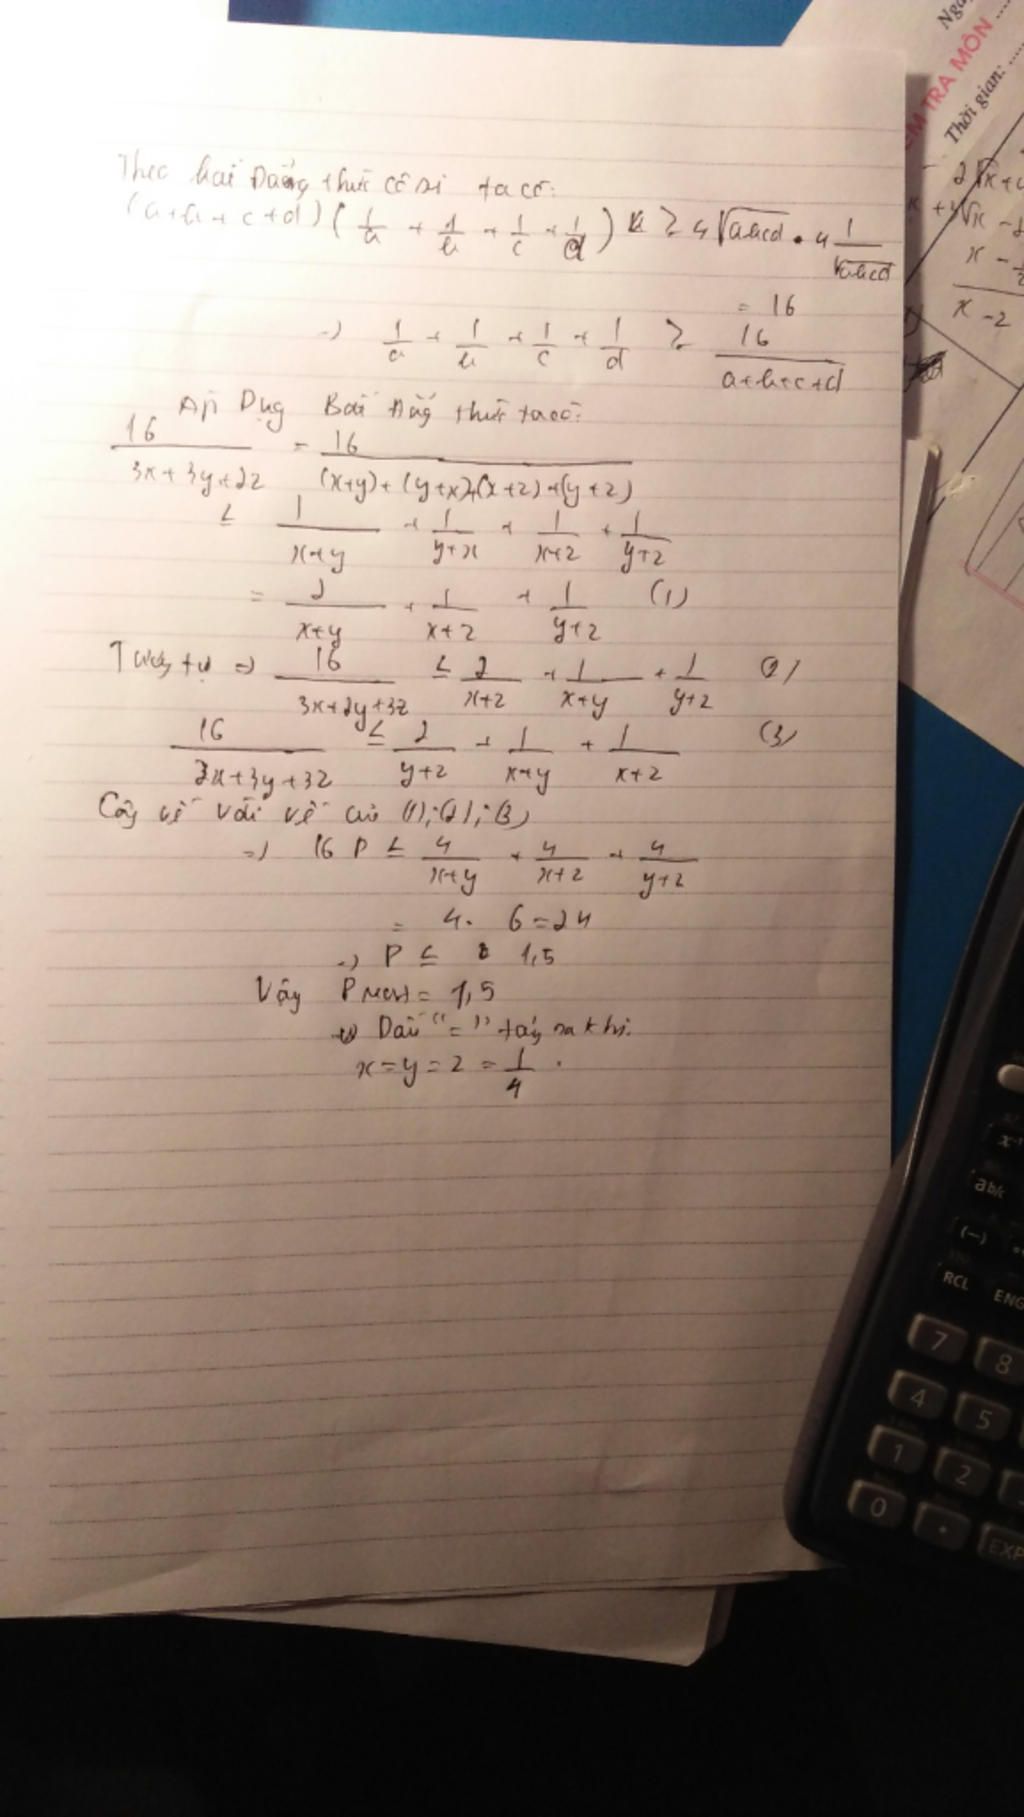 Theo bất Đẳng thức cô si ta có:
(a+b+c+d)(1/a + 1/b + 1/c + 1/d) ≥ 4√abcd . 4 1/√abcd
= 16
=) 1/a + 1/b + 1/c + 1/d ≥ 16/(a+b+c+d)
Áp Dụng Bất Đẳng thức ta có:
16/(3x+3y+2z) = 16/((x+y)+(y+x)+(x+z)+(y+z))
≤ 1/(x+y) + 1/(y+x) + 1/(x+z) + 1/(y+z)
= 2/(x+y) + 1/(x+z) + 1/(y+z) (1)
Tương tự =) 16/(3x+2y+3z) ≤ 2/(x+z) + 1/(x+y) + 1/(y+z) (2)
16/(2x+3y+3z) ≤ 2/(y+z) + 1/(x+y) + 1/(x+z) (3)
Cộng vế với vế của (1);(2);(3)
=) 16 P ≤ 4/(x+y) + 4/(x+z) + 4/(y+z)
= 4. 6=24
=) P ≤ 1,5
Vậy P max = 1,5
Dấu "=" xảy ra khi.
x=y=z=1/4 .
KIỂM TRA MÔN
Thời gian:
x-1
ab/c
(-)
RCL ENG
7 8
4 5
1 2
0 . EXP